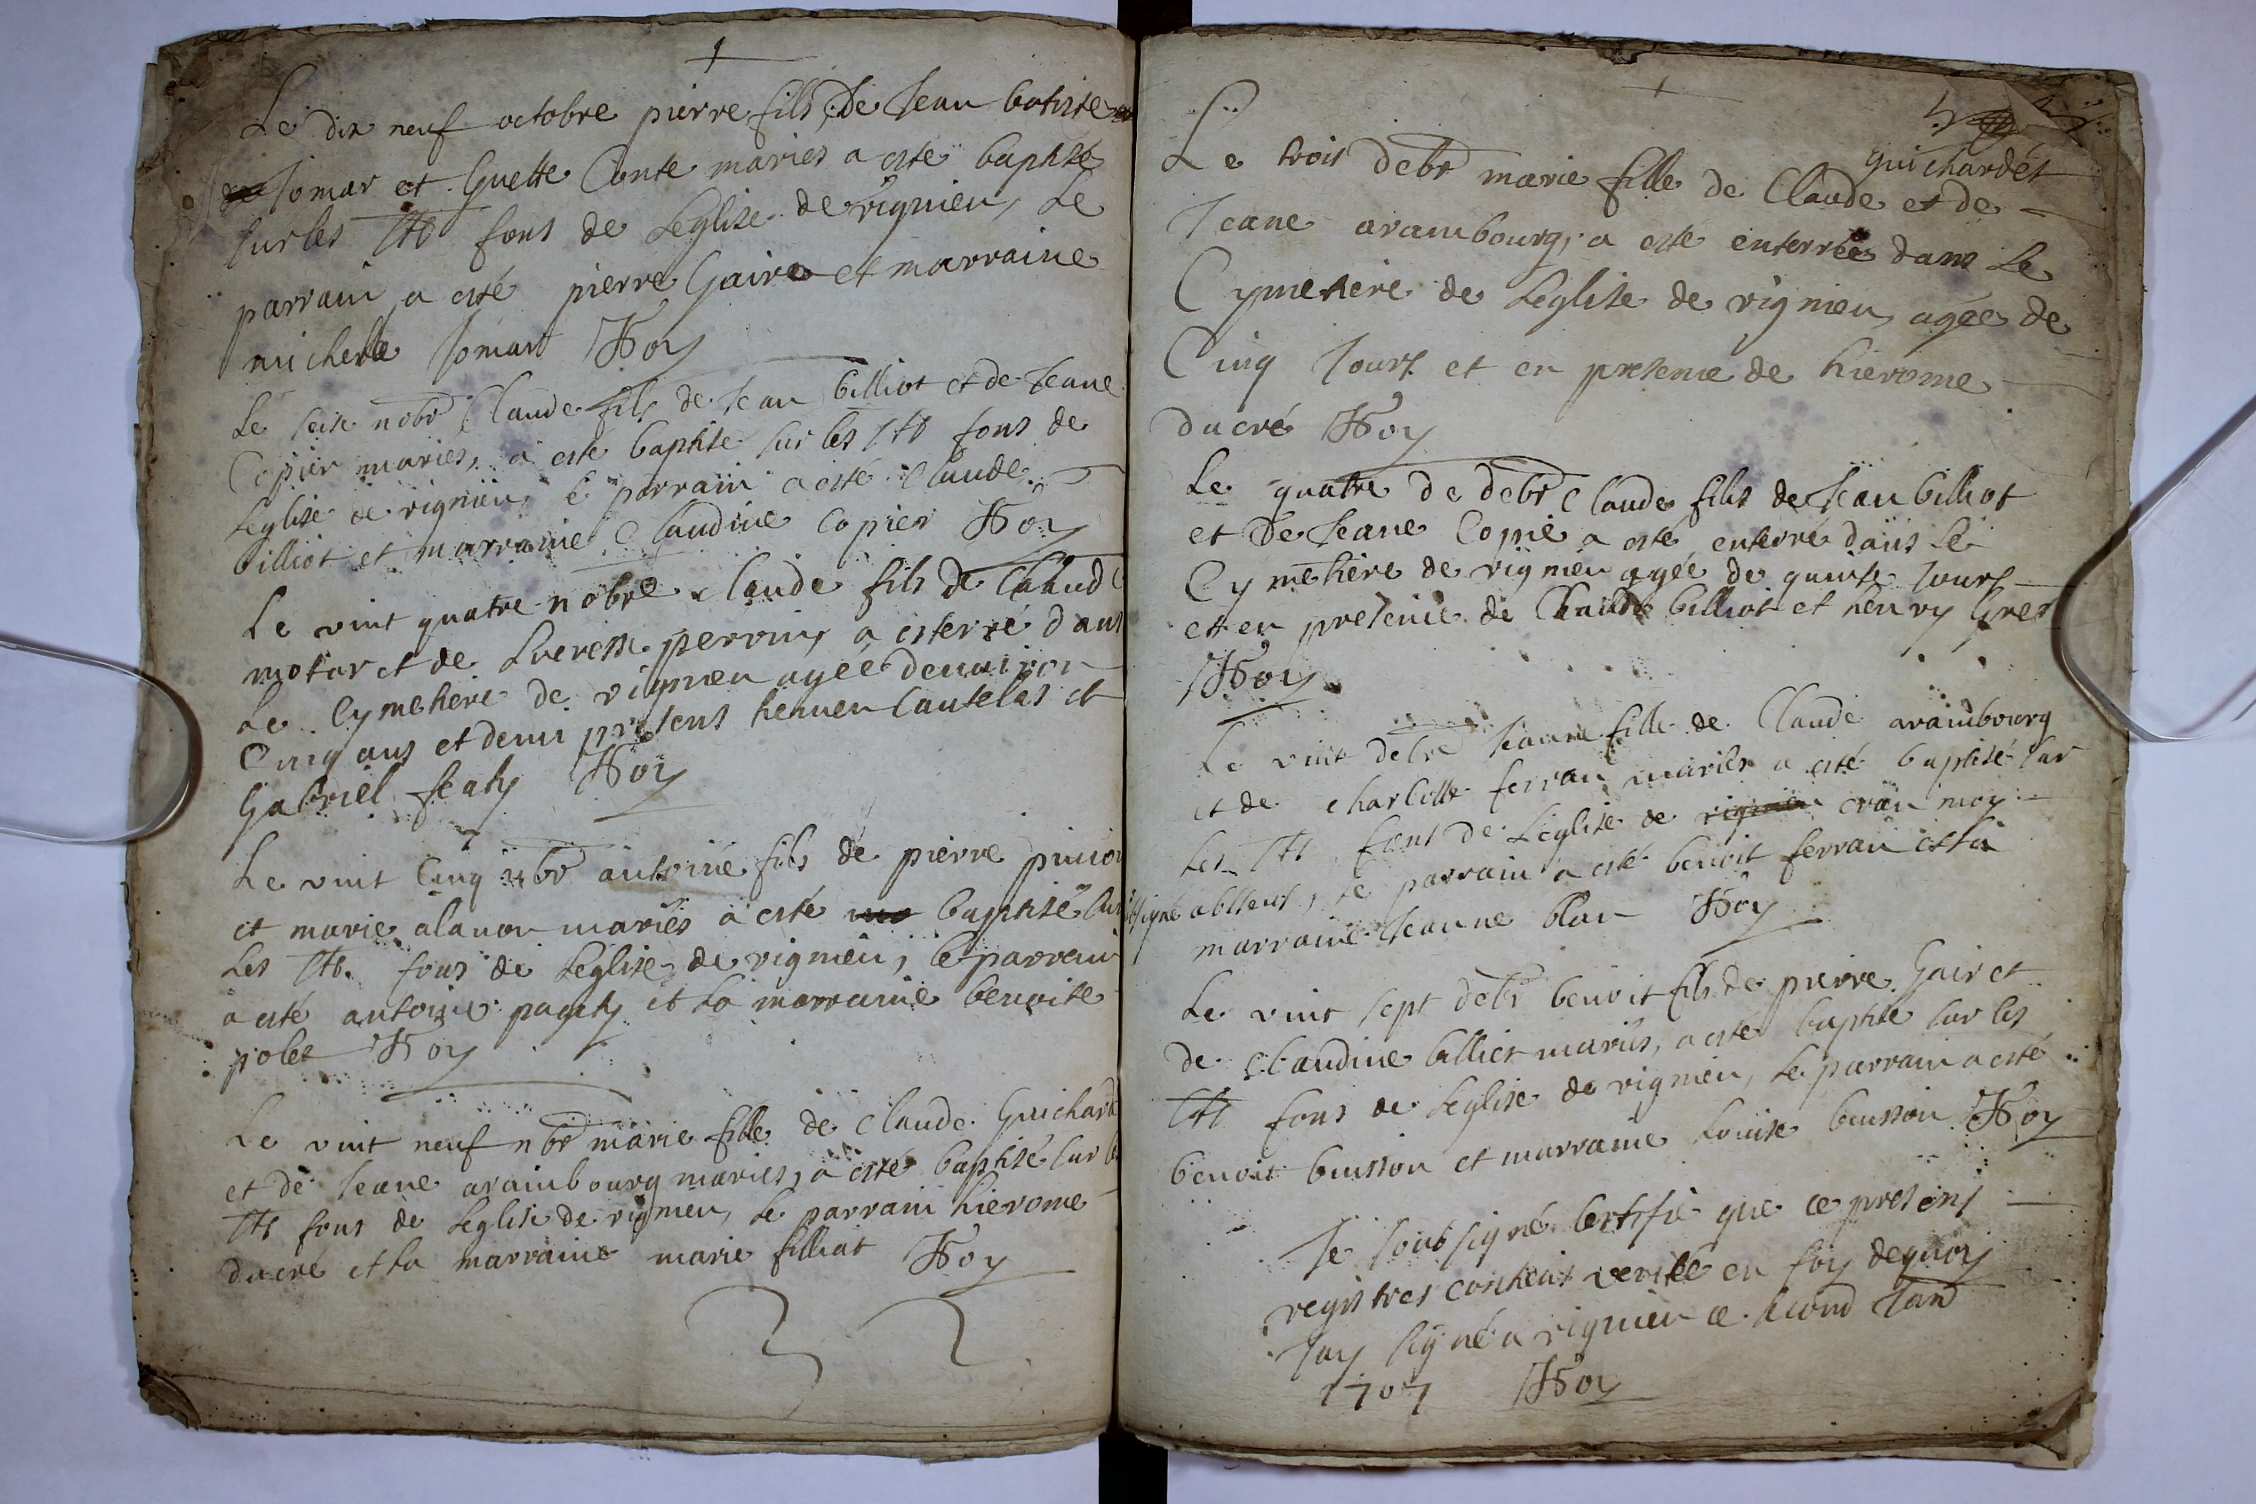 Le dix neuf octobre pierre fils de Jean batiste
Jomar et Guette Conte mariés a esté baptisé
sur les Sts fons de Leglise de vignieu, Le
parrain a esté pierre Gaire et marraine
michelle Jomart Roy
Le seise nobr Claude fils de Jean billiot et de Jeane
Copier mariés, a esté baptisé sur les Sts fons de
Leglise de vignieu, le parrain a esté Claude
billiot et marraine Claudine Copier Roy
Le vint quatre nobre Claude fils de Claude
motar et de perrin, a esterré dans
Le Cymetiere de vignieu agée denviron
Cinq ans et demi presens et
Gabriel Roy
Le vint Cinq nbr antoine fils de pierre
et marie alanon mariés a esté baptisé sur
Les Sts fons de Leglise de vignieu, le parrain
a esté antoine et la marraine benoite
polet Roy
Le vint neuf nbr marie fille de Claude Guichard
et de Jeane arambourg mariés, a esté baptisé sur
Sts fons de Leglise de vignieu, le parrain hierome
ducré et la marraine marie filliat Roy
Guichardet
Le trois debr marie fille de Claude et de
Jeane arambourg, a esté enterrée dans Le
Cymetiere de Leglise de vignieu, agée de
Cinq Jours et en presence de hierome
ducré Roy
Le quatre de debr Claude fils de Jean billiot
et de Jeane Copié a esté enterré dans Le
Cymetiere de vignieu agée de quinse Jours
et en presence de Claude billiot et henry Gres
Roy
Le vint debre Jeanne fille de Claude arambourg
et de charlotte ferran mariés a esté baptisé sur
Les Sts fons de Leglise de vignieu cran moy
signé absent, le parrain a esté benoit ferran et la
marraine Jeanne blan Roy
Le vint sept debr benoit fils de pierre Gair et
de Claudine billiet mariés, a esté baptisé sur les
Sts fons de Leglise de vignieu, Le parrain a esté
benoit buisson et marraine Louise buisson Roy
Je soubsigné Certifie que ce present
registres contient verité en foy dequoy
Jay signé a vignieu ce second Janv
1707 Roy